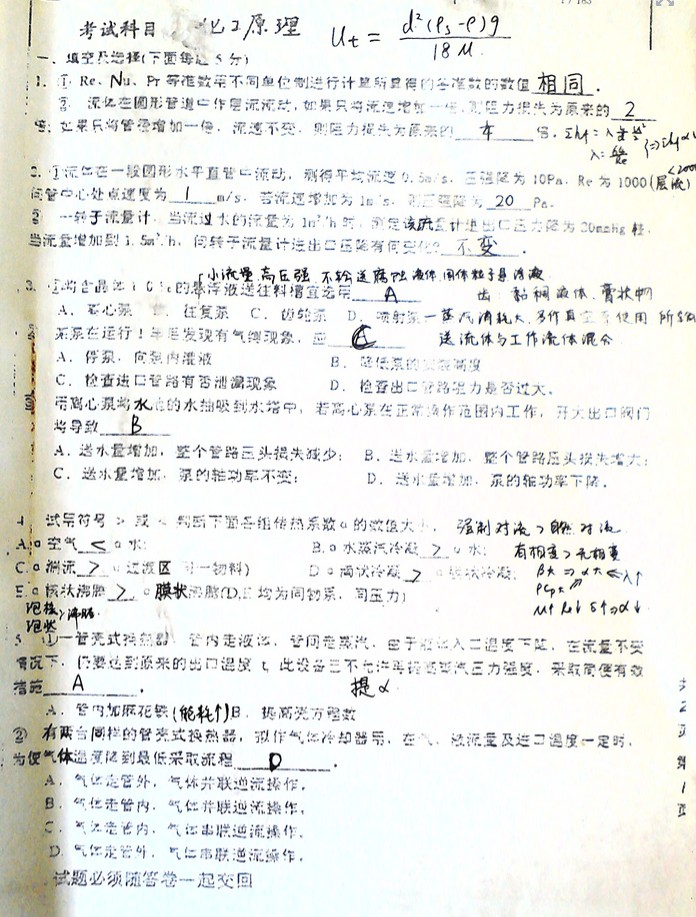 考试科目 化工原理 Ut = d²(ρs-ρ)g / 18μ
一、填空及选择(下面每题5分)
1. ① Re、Nu、Pr等准数用不同单位制进行计算所算得的各准数的数值 相同 .
② 流体在圆形管道中作层流流动,如果只将流速增加一倍,则阻力损失为原来的 2
倍;如果只将管径增加一倍,流速不变,则阻力损失为原来的 倍.
2. ①流体在一段圆形水平直管中流动,测得平均流速0.5m/s,压强降为10Pa,Re为1000(层流)<2000
问管中心处点速度为 1 m/s,若流速增加为1m/s,则压强降为 20 Pa.
② 一转子流量计,当流过水的流量为1m³/h时,测定该流量计进出口压力降为20mmHg柱,
当流量增加到1.5m³/h,问转子流量计进出口压降有何变化? 不变 .
小流量 高压强 不输送腐蚀液体 固体粒子悬浮液
3. 的悬浮液送往料槽宜选用 A 齿:黏稠液体、膏状物
A. 离心泵 往复泵 C. 齿轮泵 D. 喷射泵—蒸汽消耗大,多作真空系使用
某泵在运行1年后发现有气缚现象,应 C 送流体与工作流体混合
A. 停泵,向泵内灌液 B. 降低泵的安装高度
C. 检查进口管路有否泄漏现象 D. 检查出口管路阻力是否过大.
用离心泵将水池的水抽吸到水塔中,若离心泵在正常操作范围内工作,开大出口阀门
将导致 B
A. 送水量增加,整个管路压头损失减少; B. 送水量增加,整个管路压头损失增大;
C. 送水量增加,泵的轴功率不变; D. 送水量增加,泵的轴功率下降.
4. 试用符号 > 或 < 判断下面各组传热系数α的数值大小, 强制对流>自然对流
A.α空气 < α水; B.α水蒸汽冷凝 > α水; 有相变>无相变
C.α湍流 > α过渡区(同一物料) D.α滴状冷凝 > α膜状冷凝;
E.α核状沸腾 > α膜状沸腾(D,E均为同物系,同压力)
5. ①一管壳式换热器,管内走液体,管间走蒸汽,由于液体入口温度下降,在流量不变
情况下,仍要达到原来的出口温度t,此设备已不允许再提高蒸汽压力强度,采取简便有效
措施 A . 提α
A. 管内加麻花铁(能耗↑) B. 提高壳方程数
② 有两台同样的管壳式换热器,拟作气体冷却器用,在气、液流量及进口温度一定时,
为使气体温度降到最低采取流程 D .
A. 气体走管外,气体并联逆流操作,
B. 气体走管内,气体并联逆流操作,
C. 气体走管内,气体串联逆流操作,
D. 气体走管外,气体串联逆流操作.
试题必须随答卷一起交回
共2页 第1页